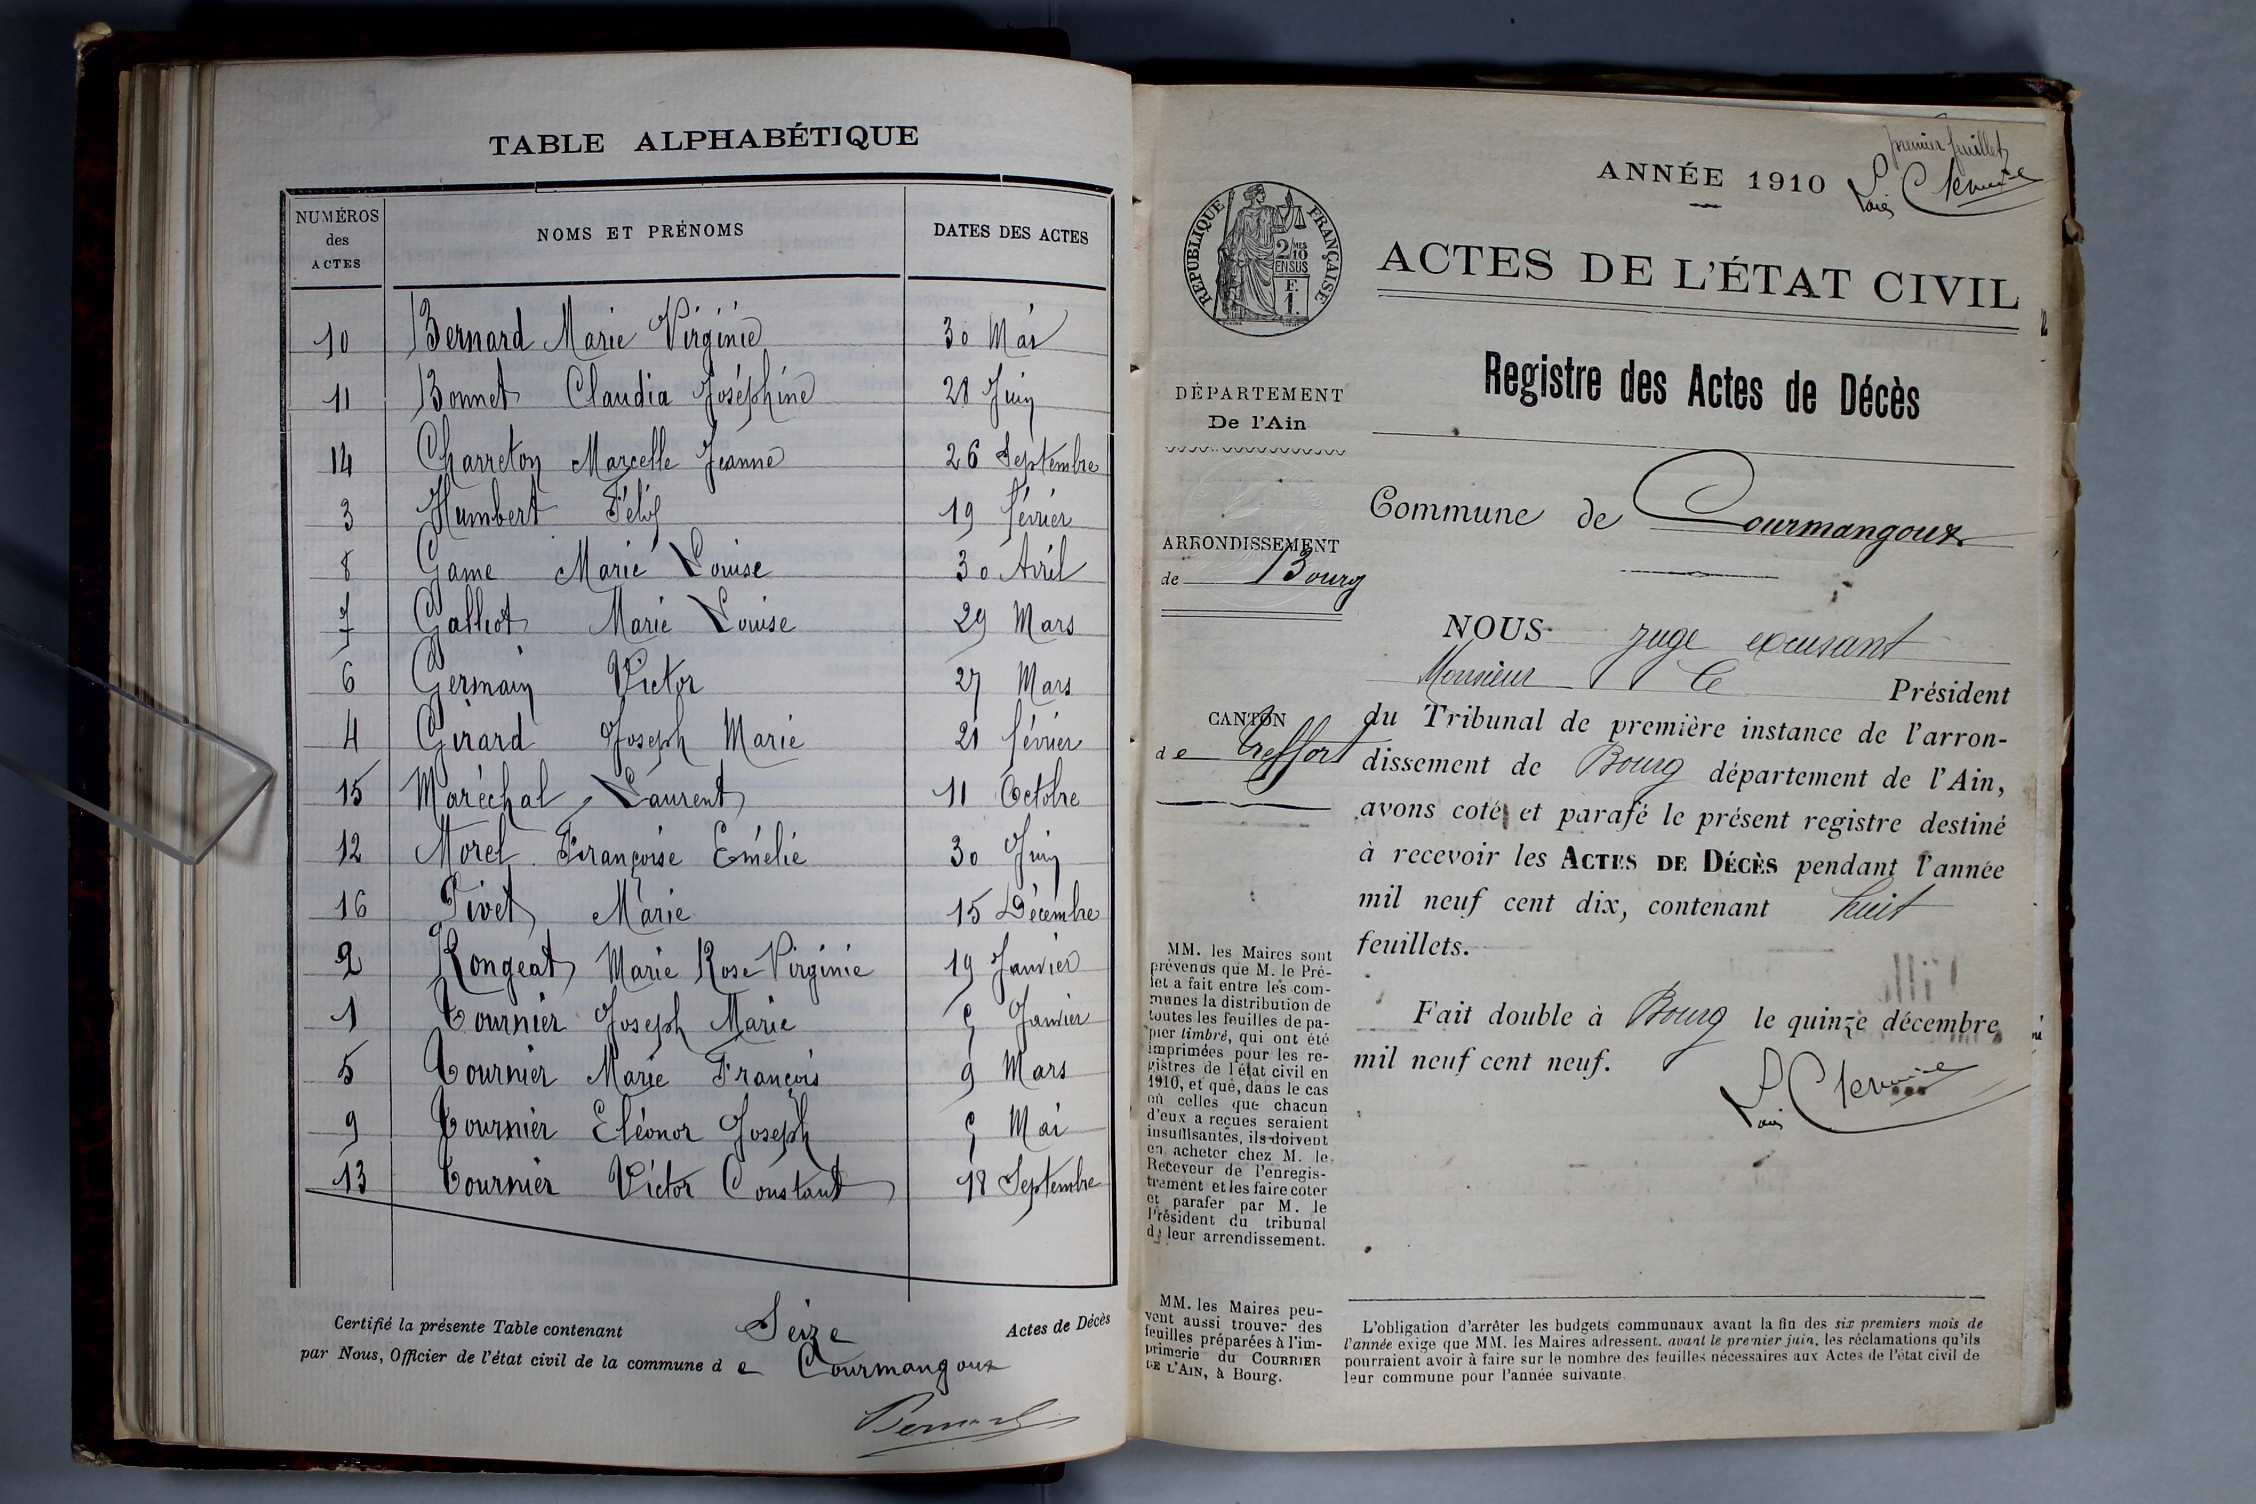 TABLE ALPHABÉTIQUE
NUMÉROS des ACTES NOMS ET PRÉNOMS DATES DES ACTES
10 Bernard Marie Virginie 30 Mai
11 Bonnet Claudia Joséphine 28 Juin
14 Charreton Marcelle Jeanne 26 Septembre
3 Humbert Félix 19 février
8 Game Marie Louise 30 Avril
7 Galliot Marie Louise 29 Mars
6 Germain Victor 27 Mars
4 Girard Joseph Marie 21 février
15 Maréchal Laurent 11 Octobre
12 Morel Françoise Emélie 30 Juin
16 Pivet Marie 15 Décembre
2 Rongeat Marie Rose Virginie 19 Janvier
1 Tournier Joseph Marie 5 Janvier
5 Tournier Marie François 9 Mars
9 Tournier Eléonor Joseph 5 Mai
13 Tournier Victor Constant 18 Septembre
Certifié la présente Table contenant Seize Actes de Décès
par Nous, Officier de l'état civil de la commune d e Courmangoux
premier feuillet
ANNÉE 1910
RÉPUBLIQUE FRANÇAISE
2/10MES
EN SUS
F.
1.
ACTES DE L'ÉTAT CIVIL
Registre des Actes de Décès
DÉPARTEMENT
De l'Ain
Commune de Courmangoux
ARRONDISSEMENT
de Bourg
CANTON
de Treffort
NOUS juge excusant
Monsieur le Président
du Tribunal de première instance de l'arron-
dissement de Bourg département de l'Ain,
avons coté et parafé le présent registre destiné
à recevoir les ACTES DE DÉCÈS pendant l'année
mil neuf cent dix, contenant huit
feuillets.
Fait double à Bourg le quinze décembre
mil neuf cent neuf.
MM. les Maires sont
prévenus que M. le Pré-
fet a fait entre les com-
munes la distribution de
toutes les feuilles de pa-
pier timbré, qui ont été
imprimées pour les re-
gistres de l'état civil en
1910, et que, dans le cas
où celles que chacun
d'eux a reçues seraient
insuffisantes, ils doivent
en acheter chez M. le
Receveur de l'enregis-
trement et les faire coter
et parafer par M. le
Président du tribunal
de leur arrondissement.
MM. les Maires peu-
vent aussi trouver des
feuilles préparées à l'im-
primerie du COURRIER
DE L'AIN, à Bourg.
L'obligation d'arrêter les budgets communaux avant la fin des six premiers mois de
l'année exige que MM. les Maires adressent, avant le premier juin, les réclamations qu'ils
pourraient avoir à faire sur le nombre des feuilles nécessaires aux Actes de l'état civil de
leur commune pour l'année suivante.